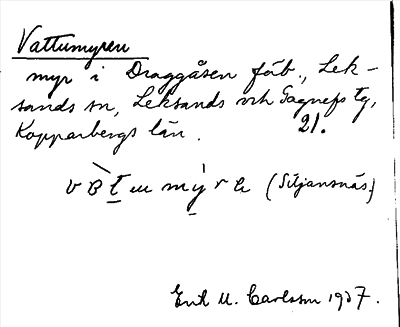 Vattumyren
myr i Draggåsen fäb., Lek-
sands sn, Leksands och Gagnefs tg,
Kopparbergs län. 21.
(Siljansnäs)
Erik M. Carlsson 1937.